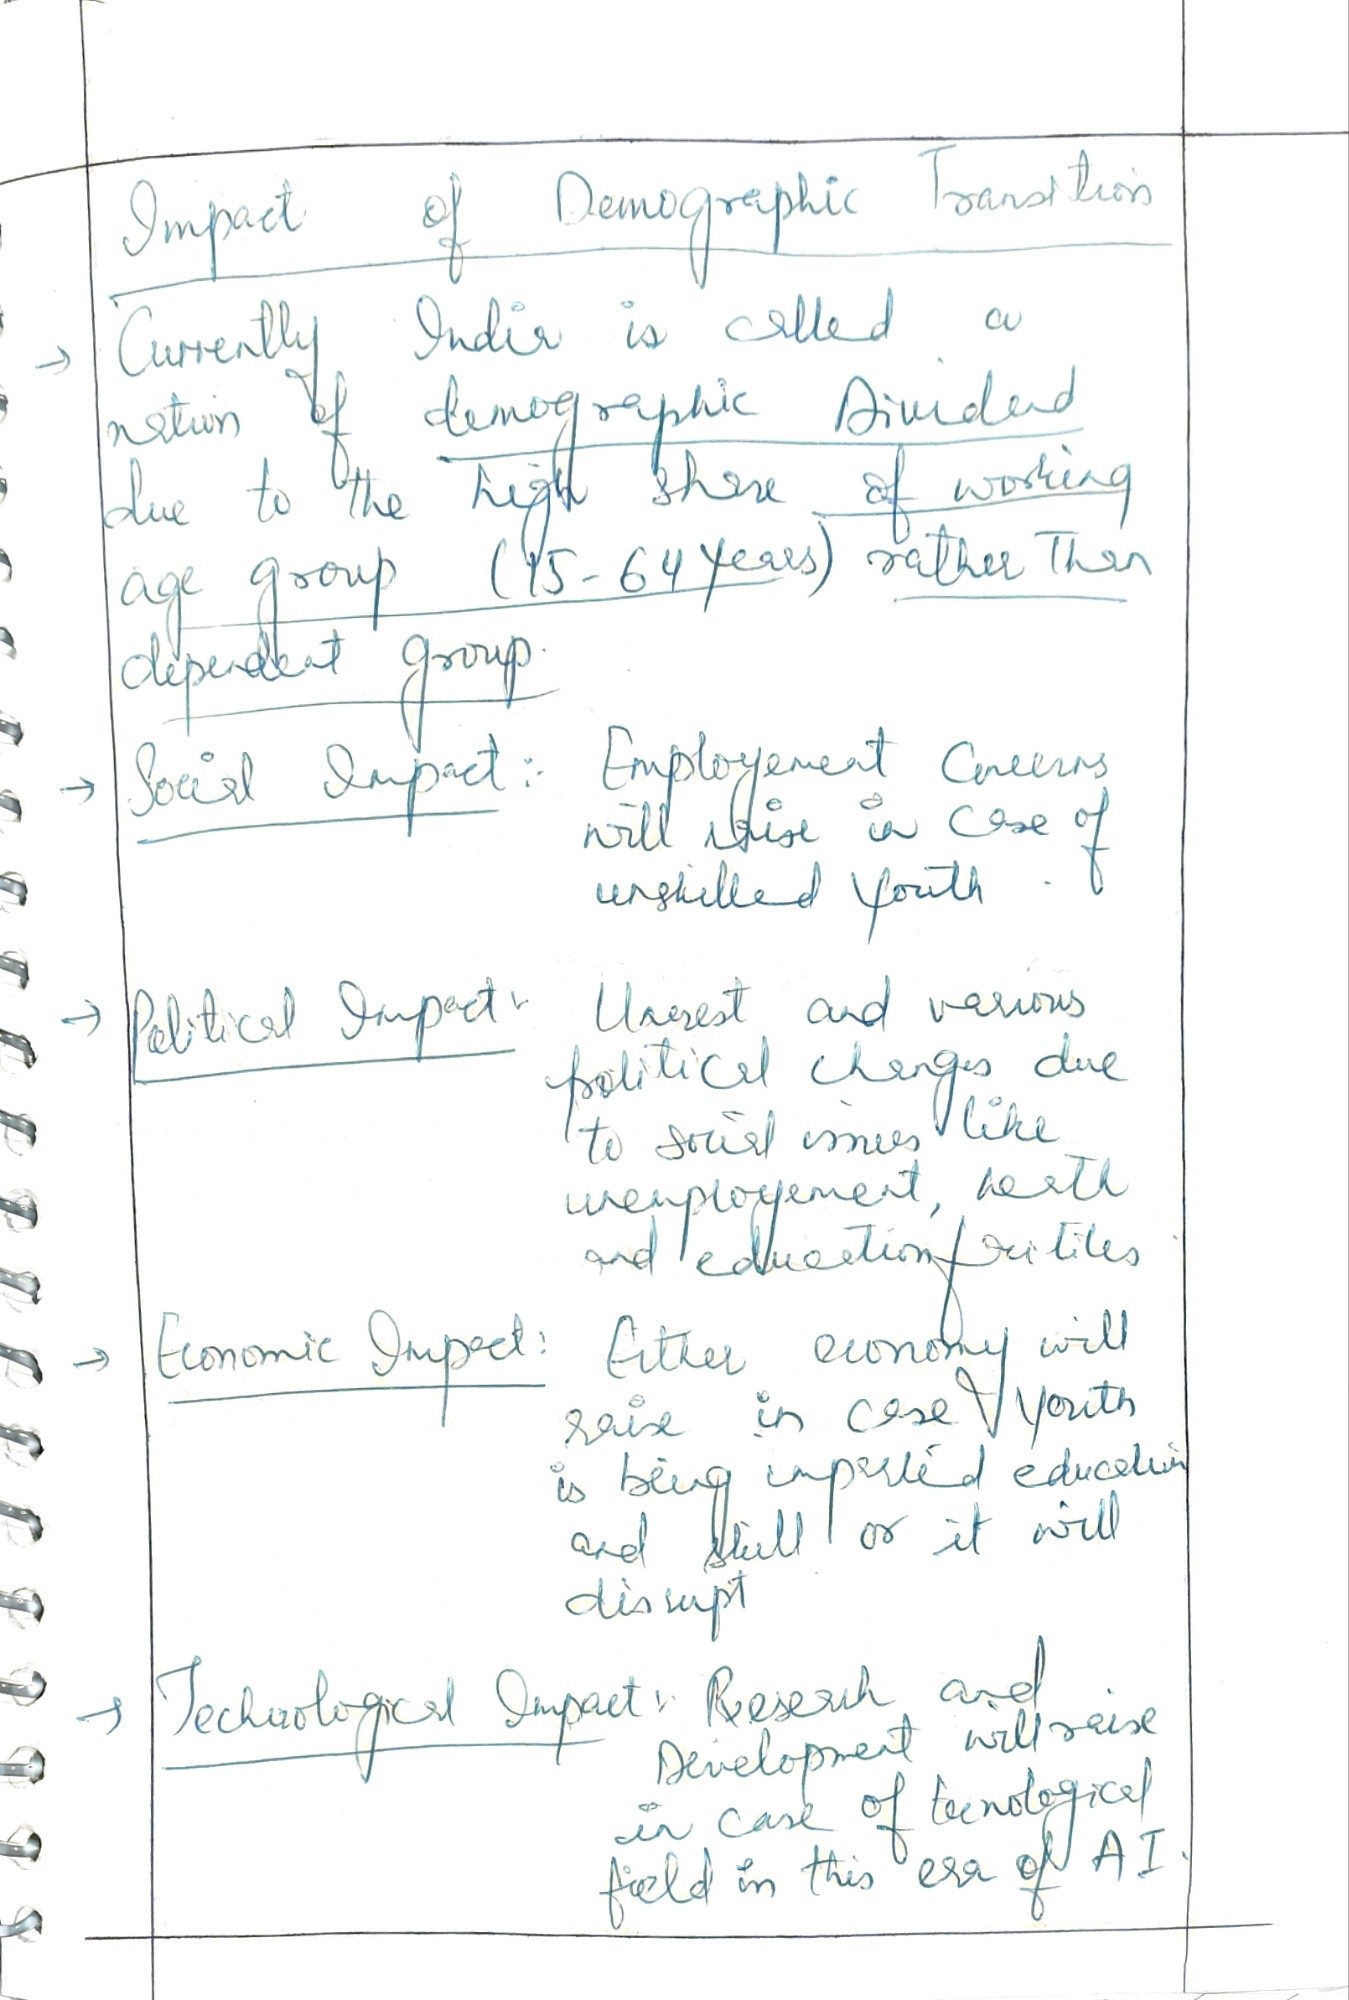 Impact of Demographic Transition
→ Currently India is called a
nation of demographic Dividend
due to the high share of working
age group (15-64 years) rather than
dependent group.
→ Social Impact:- Employement Concerns
will raise in case of
unskilled youth.
→ Political Impact:- Unrest and various
political changes due
to social issues like
unemployement, health
and education facilities
→ Economic Impact: Either economy will
raise in case youth
is being imparted education
and skill or it will
disrupt
→ Technological Impact:- Research and
Development will raise
in case of tecnological
field in this era of AI.